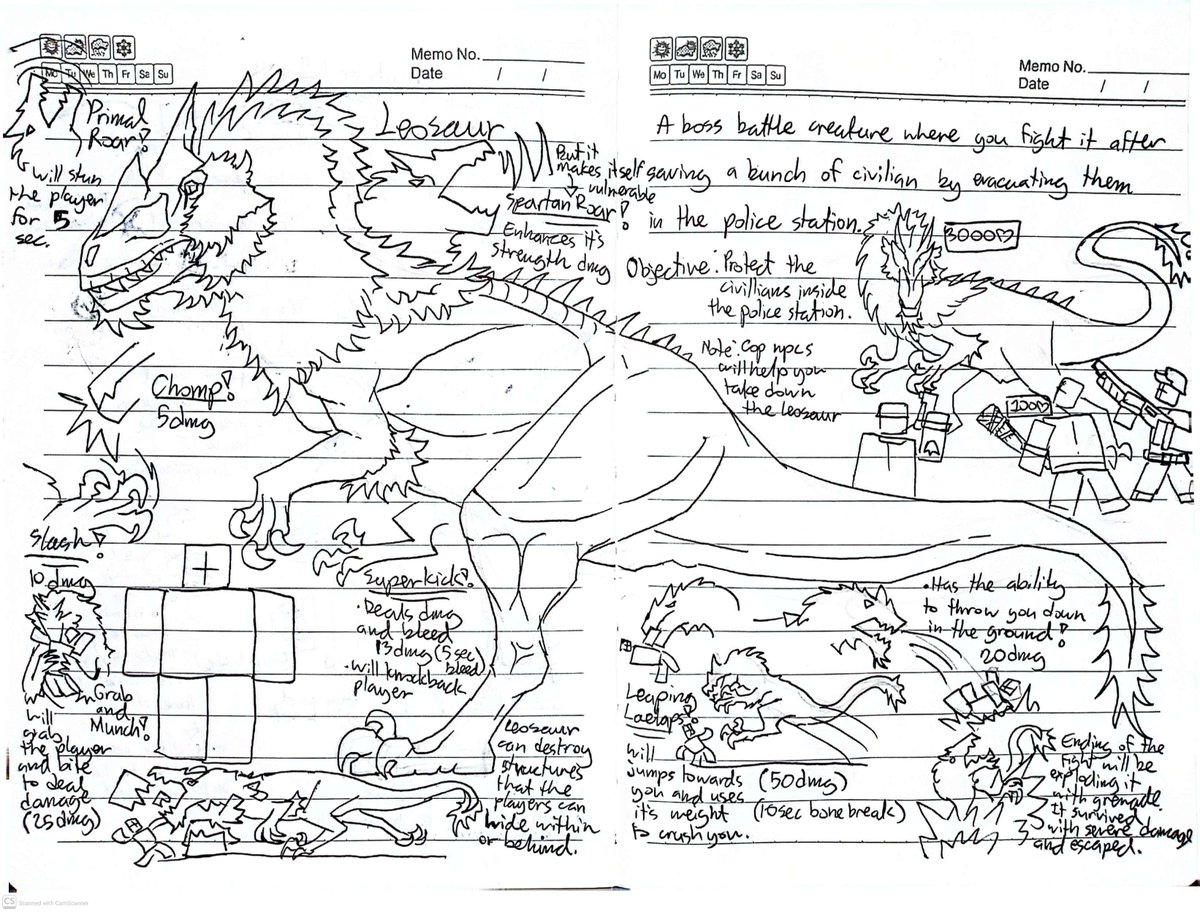 Memo No.
Date / /
Mo Tu We Th Fr Sa Su
Primal
Roar!
will stun
the player
for 5
sec.
Leosaur
But it
makes itself
vulnerable
Spartan Roar!
Enhances it's
strength dmg
Chomp!
5dmg
Slash!
10 dmg
Grab
and
Munch!
will
grab
the player
and bite
to deal
damage
(25dmg)
Superkick!
• Deals dmg
and bleed
13dmg (5sec
bleed)
• will knockback
player
Leosaur
can destroy
structures
that the
players can
hide within
or behind.
Memo No.
Date / /
Mo Tu We Th Fr Sa Su
A boss battle creature where you fight it after
saving a bunch of civilian by evacuating them
in the police station.
3000♡
Objective: Protect the
civillians inside
the police station.
Note: Cop npcs
will help you
take down
the leosaur
100♡
• Has the ability
to throw you down
in the ground!
20dmg
Leaping
Laelaps!
will
jumps towards
you and uses
it's weight
to crush you.
(50dmg)
(10sec bone break)
Ending of the
fight will be
exploding it
with grenade.
It survived
with severe damage
and escaped.
CS Scanned with CamScanner